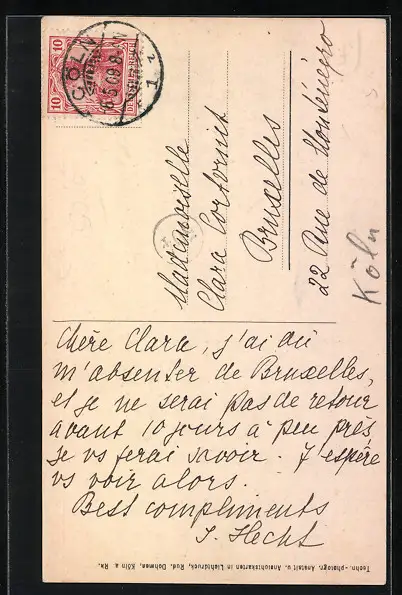 10
10
CÖLN
1
Mademoiselle
Clara
Bruxelles
22 Rue de Monténégro
Köln
Chère Clara, j'ai dû
m'absenter de Bruxelles,
et je ne serai pas de retour
avant 10 jours à peu près
je vs ferai savoir. J'espère
vs voir alors.
Best compliments
J. Hecht
Techn.-photogr. Anstalt u. Ansichtskarten in Lichtdruck, Rud. Dohmen, Köln a. Rh.